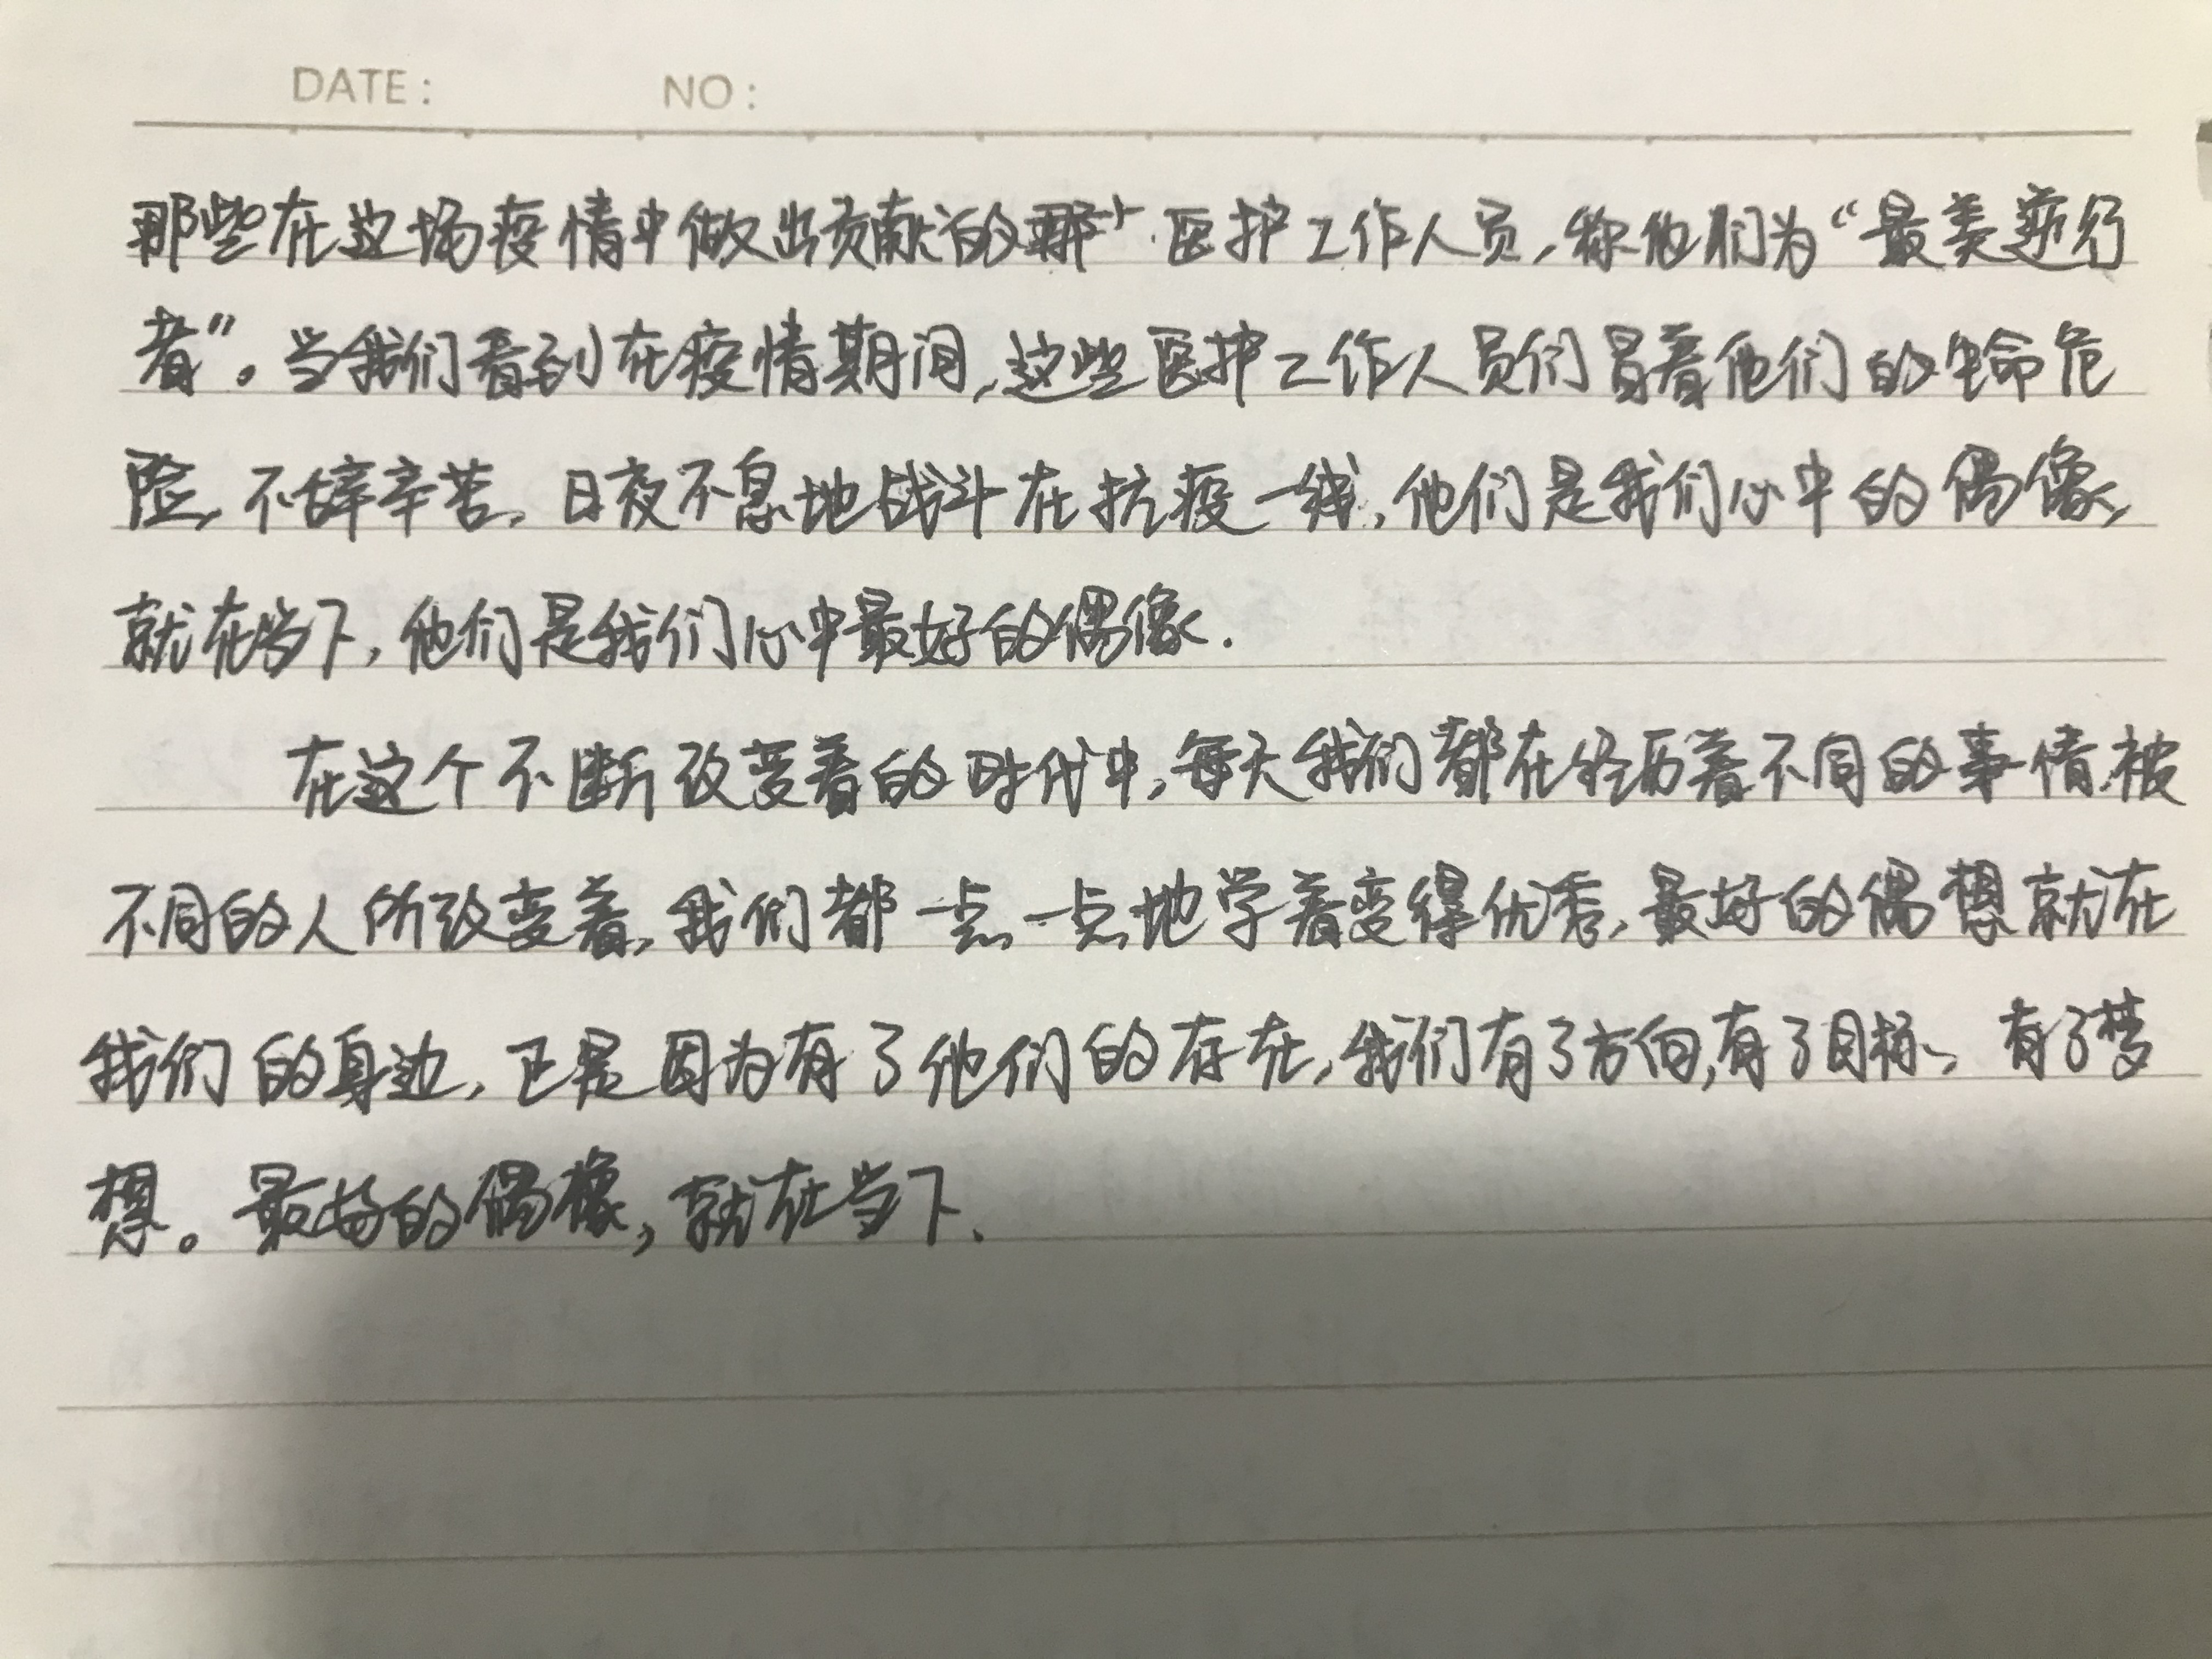 DATE: NO:
那些在这场疫情中做出贡献的医护工作人员,称他们为“最美逆行
者”。当我们看到在疫情期间,这些医护工作人员们冒着他们的生命危
险,不辞辛苦,日夜不息地战斗在抗疫一线,他们是我们心中的偶像,
就在当下,他们是我们心中最好的偶像.
在这个不断改变着的时代中,每天我们都在经历着不同的事情,被
不同的人所改变着,我们都一点一点地学着变得优秀,最好的偶想就在
我们的身边,正是因为有了他们的存在,我们有了方向,有了目标、有了梦
想。最好的偶像,就在当下.